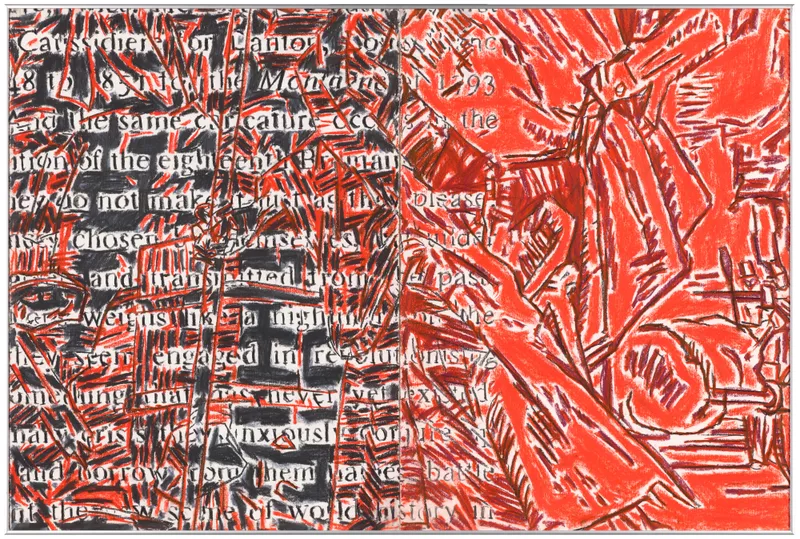 Caussidiere for Danton,
48 to 1851 for the Montagne of 1793
and the same caricature occ the
ition of the eighteenth Brumair
do not make it just as they please
chosen themselves, under
and transmitted from the past
weighs like a nigh the
they seem engaged in revolutionis
omething that has never yet existed
crisis they anxiously conjure
and borrow from them names battle
the new scene of world history in